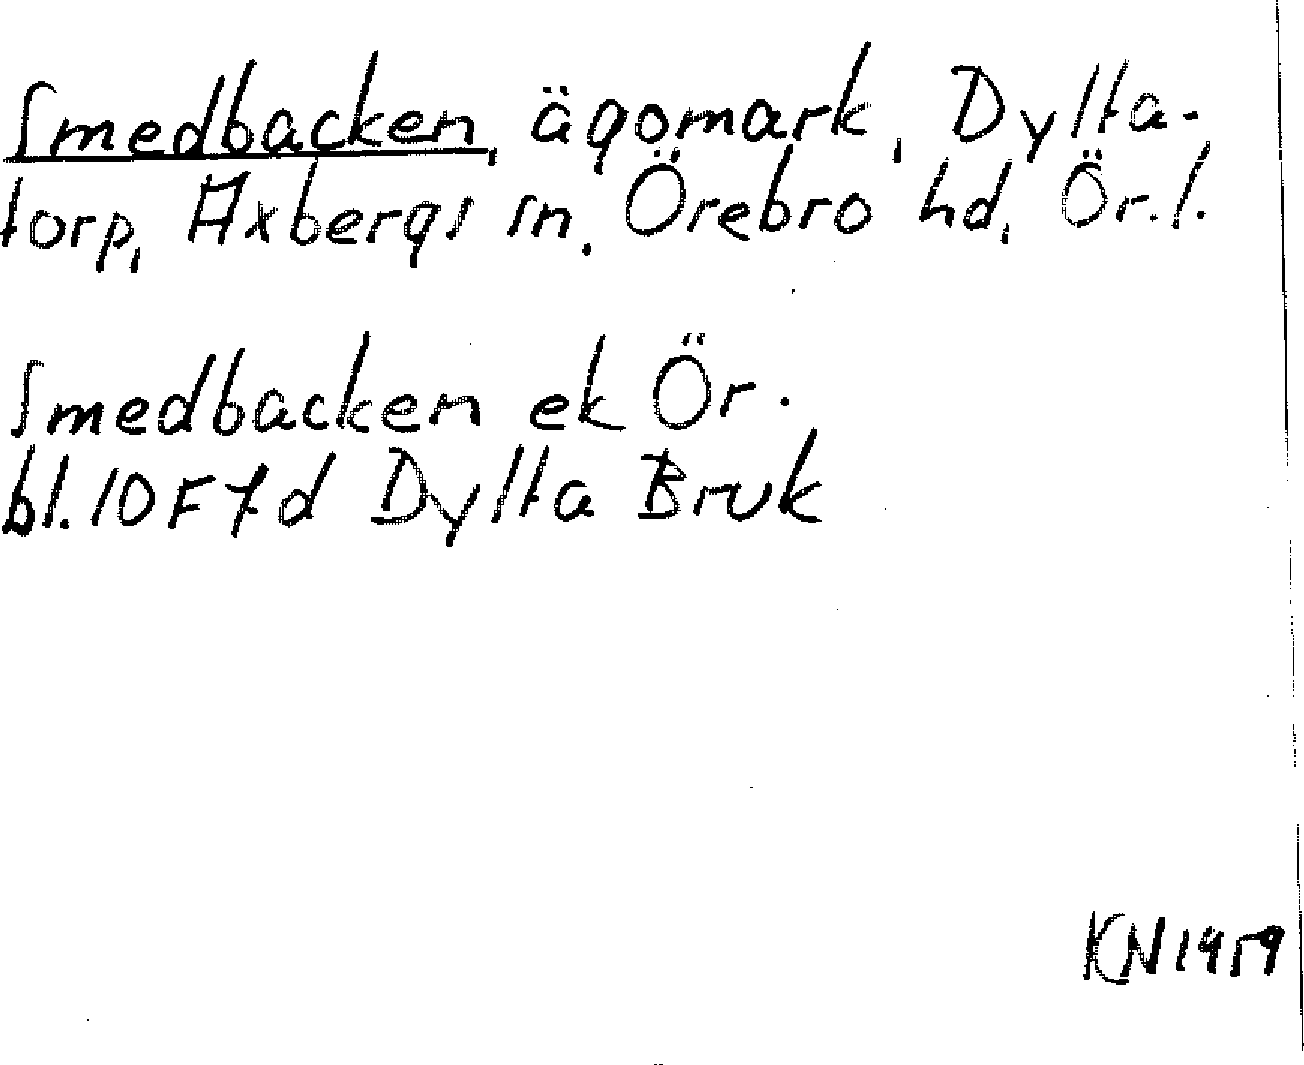 Smedbacken, ägomark, Dylta-
torp, Axbergs sn, Örebro hd, Ör. l.
Smedbacken ek Ör.
bl. 10F7d Dylta Bruk
KN 1959